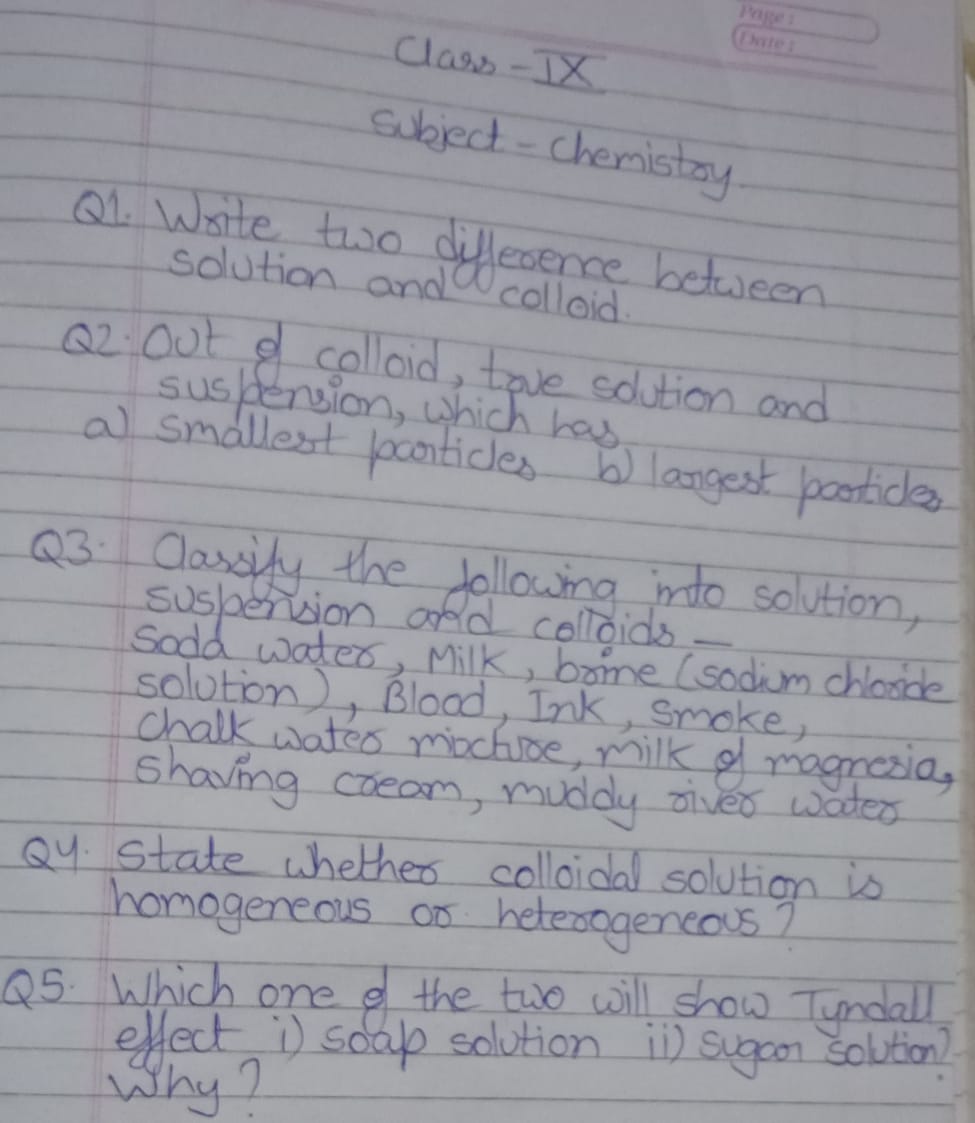 Page:
Date:
Class - IX
Subject - Chemistry.
Q1. Write two difference between
solution and colloid.
Q2. Out of colloid, true solution and
suspension, which has
a) smallest particles b) largest particles
Q3. Classify the following into solution,
suspension and colloids -
Soda water, Milk, brine (sodium chloride
solution), Blood, Ink, smoke,
Chalk water mixture, milk of magnesia,
Shaving cream, muddy river water
Q4. State whether colloidal solution is
homogeneous or heterogeneous?
Q5. Which one of the two will show Tyndall
effect i) soap solution ii) sugar solution?
Why?